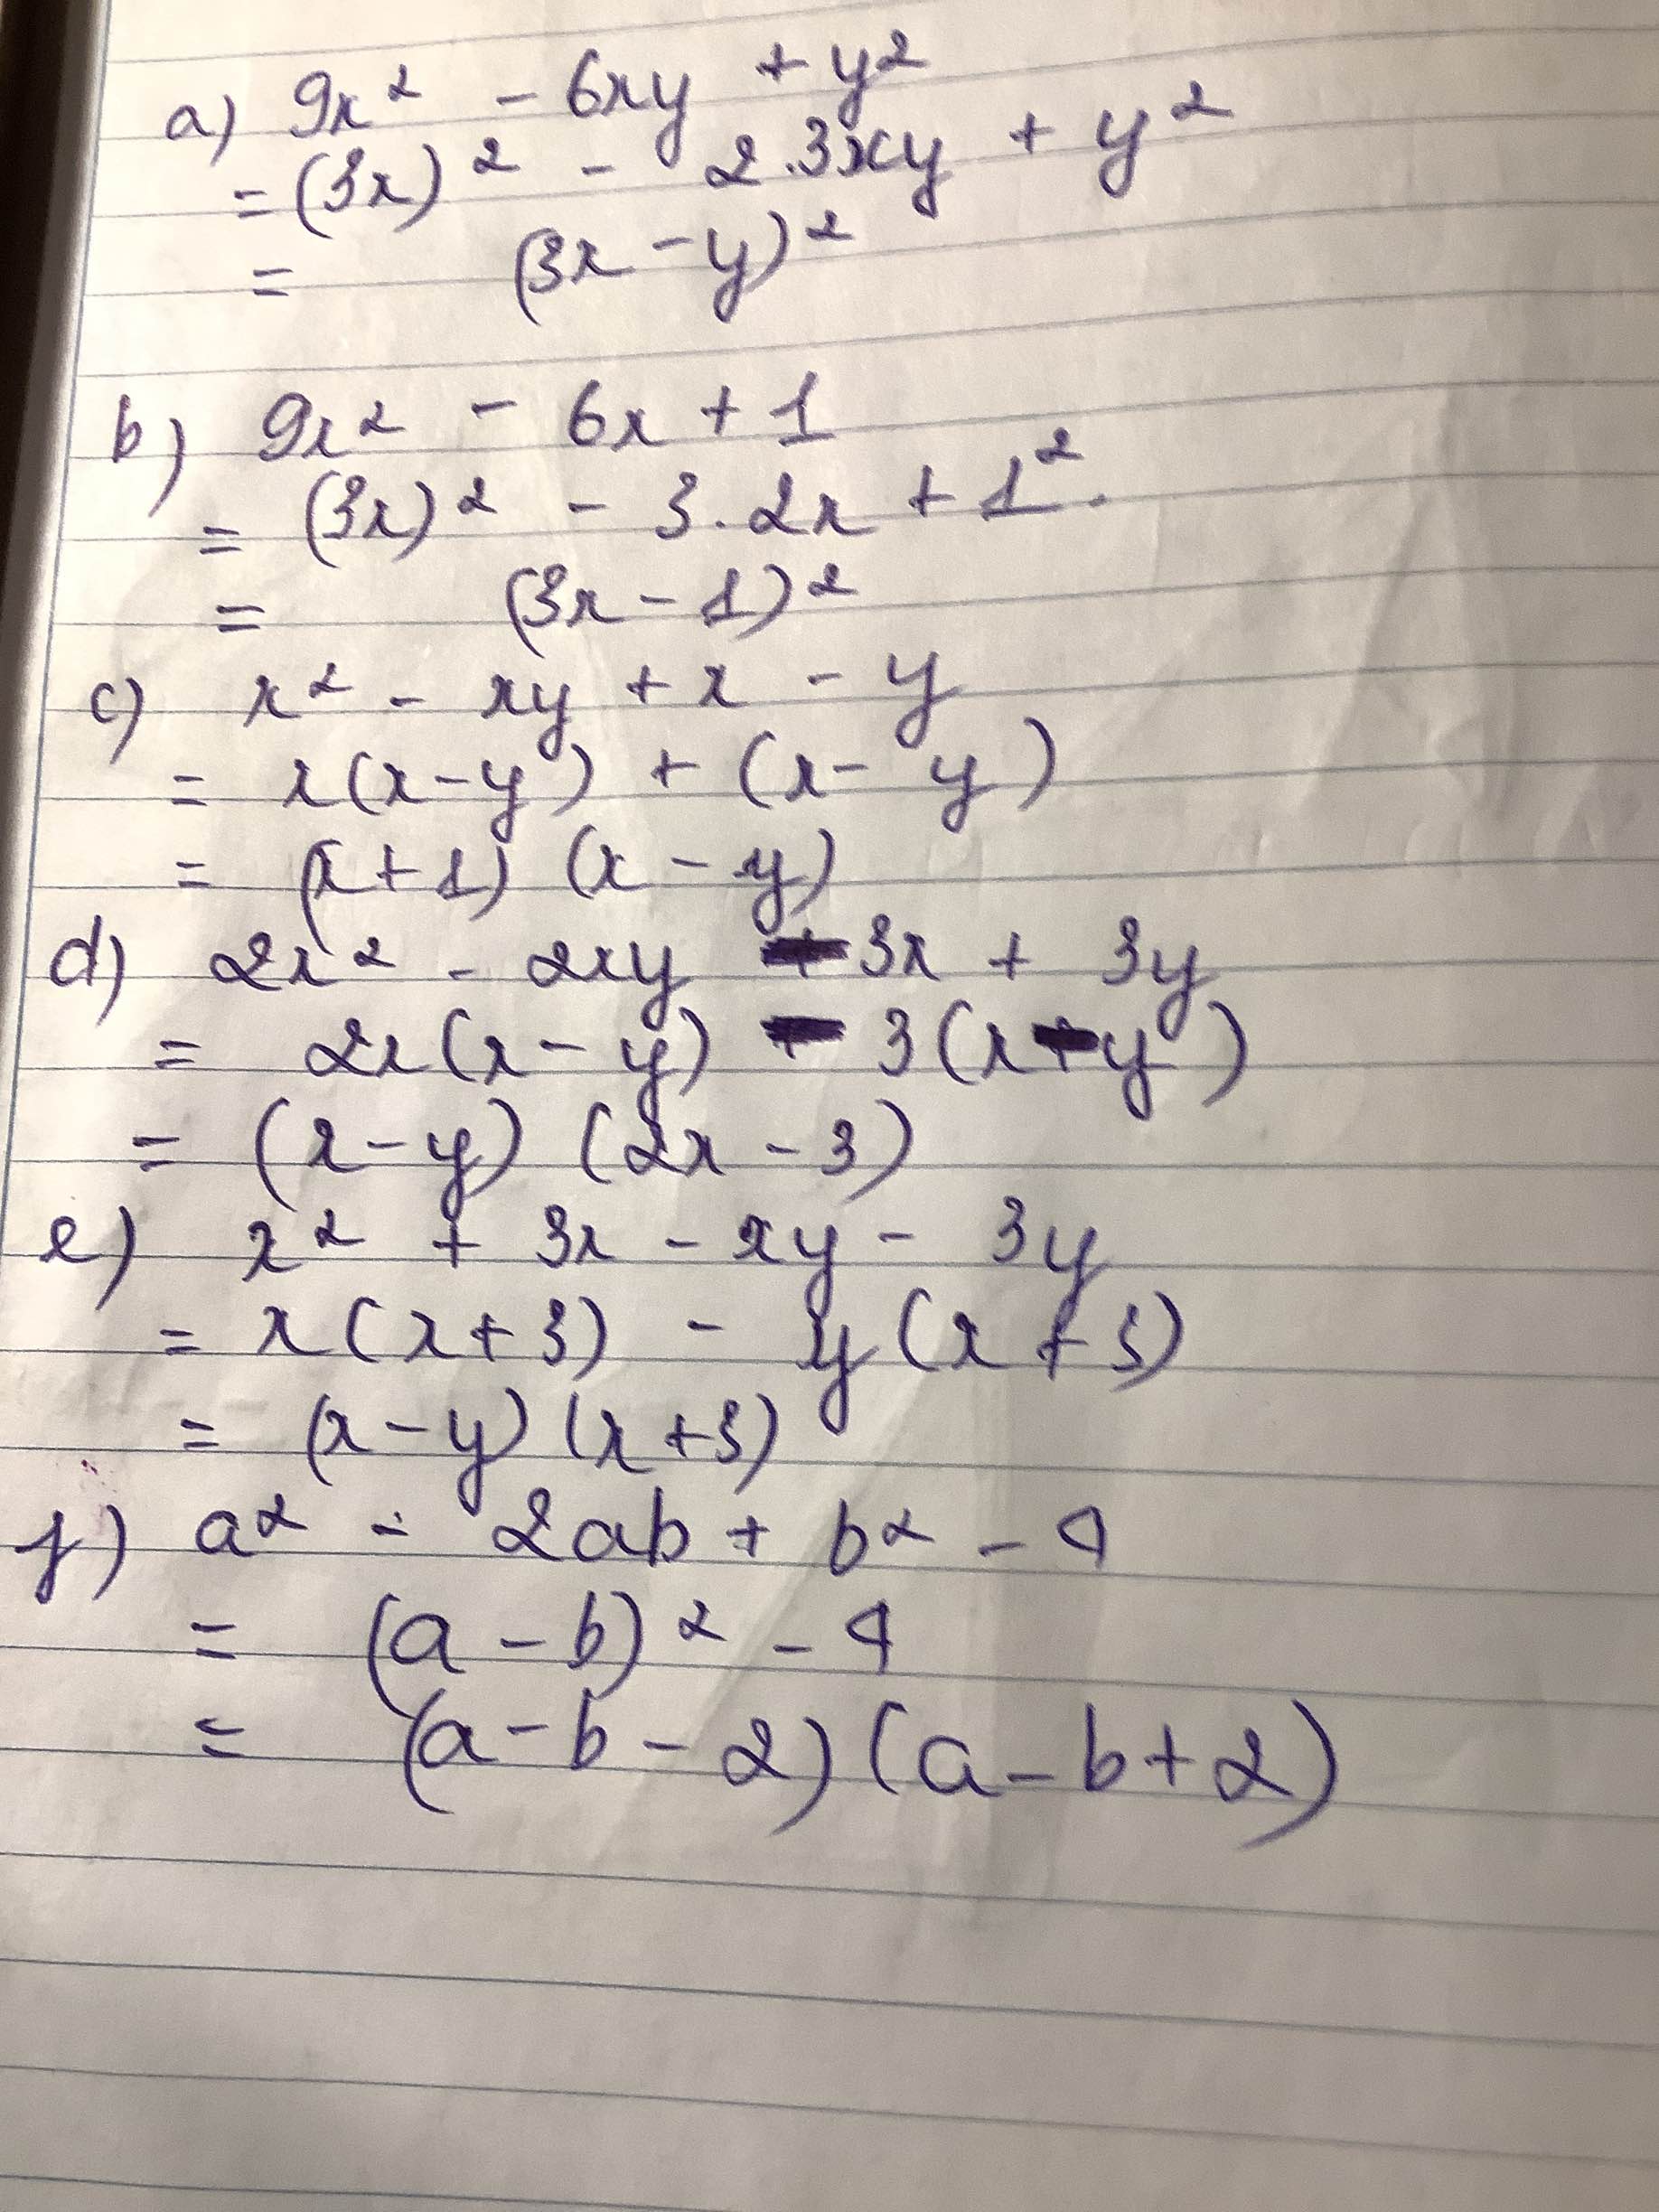 a) 9x² - 6xy + y²
= (3x)² - 2.3xy + y²
= (3x - y)²
b) 9x² - 6x + 1
= (3x)² - 3.2x + 1².
= (3x - 1)²
c) x² - xy + x - y
= x(x - y) + (x - y)
= (x + 1) (x - y)
d) 2x² - 2xy - 3x + 3y
= 2x(x - y) - 3(x - y)
= (x - y) (2x - 3)
e) x² + 3x - xy - 3y
= x(x + 3) - y(x + 3)
= (x - y) (x + 3)
f) a² - 2ab + b² - 4
= (a - b)² - 4
= (a - b - 2) (a - b + 2)